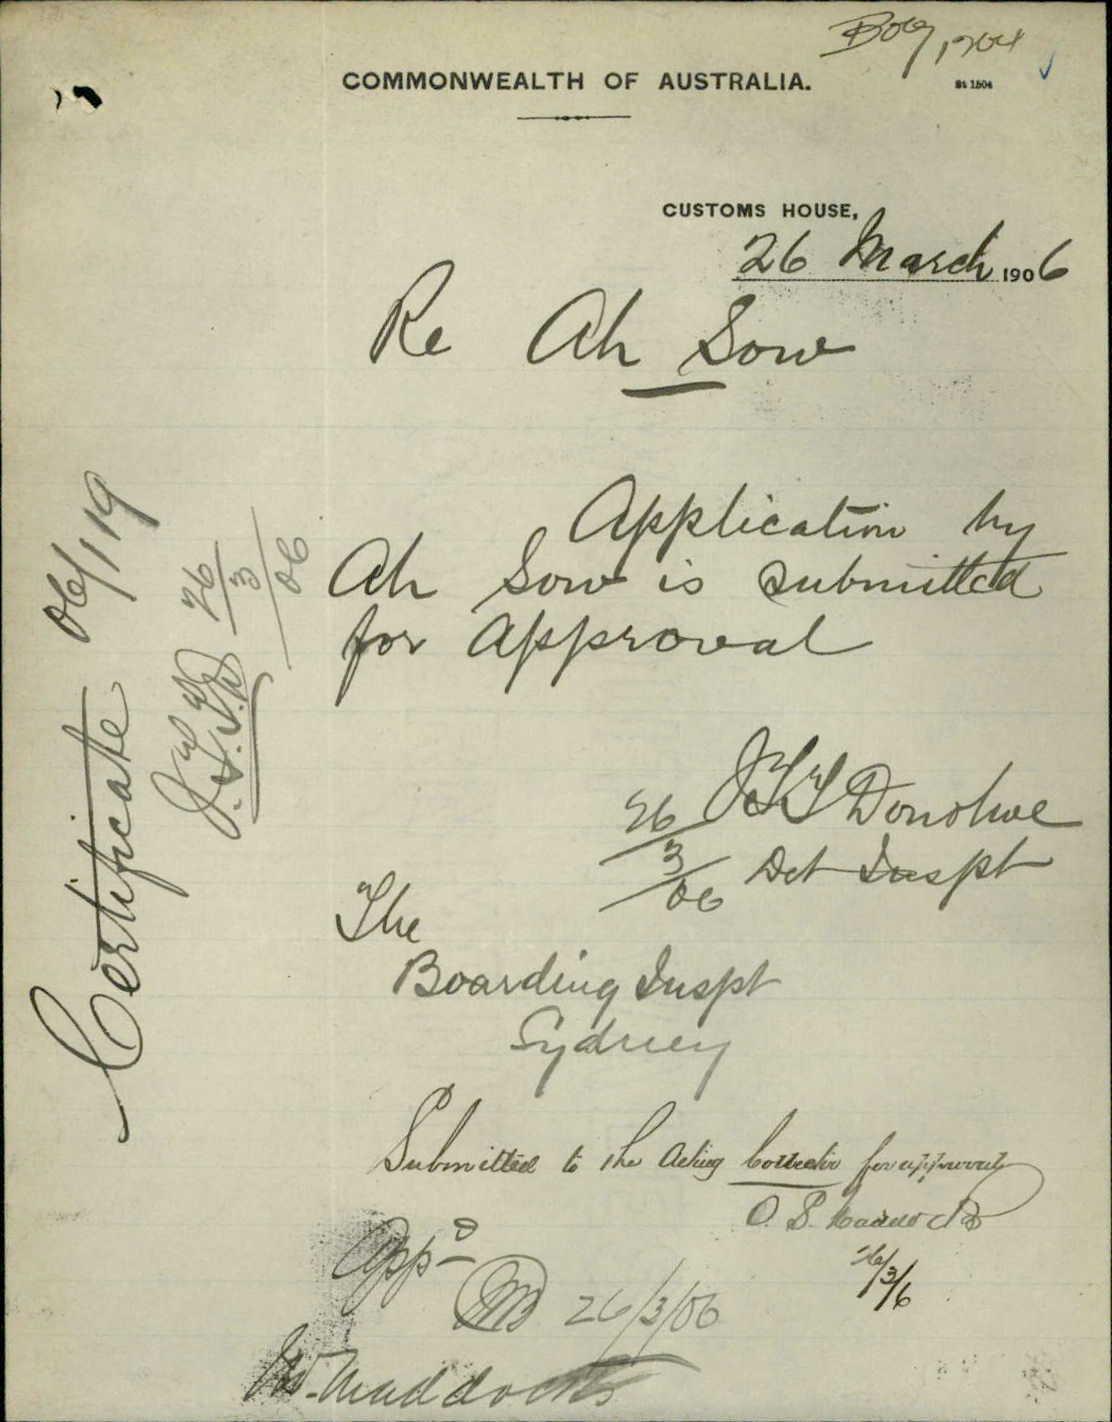 COMMONWEALTH OF AUSTRALIA.
St 1504
CUSTOMS HOUSE,
26 March 1906
Re Ah Sow
Application by
Ah Sow is submitted
for approval
Donohue
26/3/06
Det Inspt
The
Boarding Inspt
Sydney
Submitted to the Acting Collector for approval
26/3/6
Appd
26/3/06
Mr. Maddocks
Certificate 06/119
26/3/06